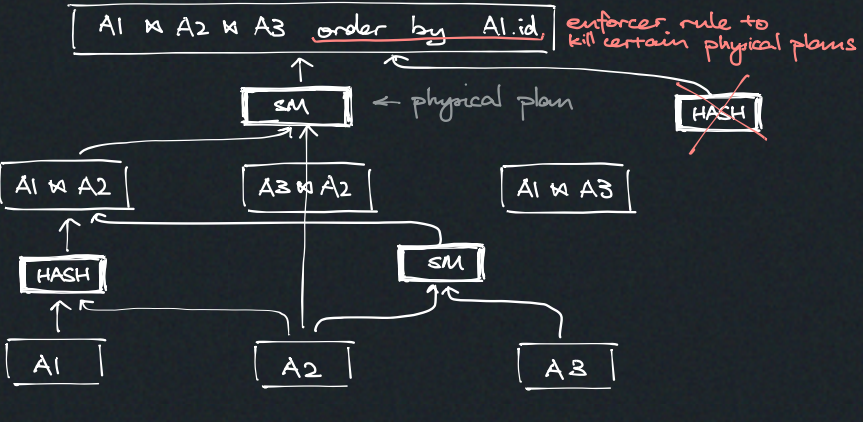 A1 ⋈ A2 ⋈ A3 order by A1.id
enforcer rule to
kill certain physical plans
SM
← physical plan
HASH
A1 ⋈ A2
A3 ⋈ A2
A1 ⋈ A3
HASH
SM
A1
A2
A3